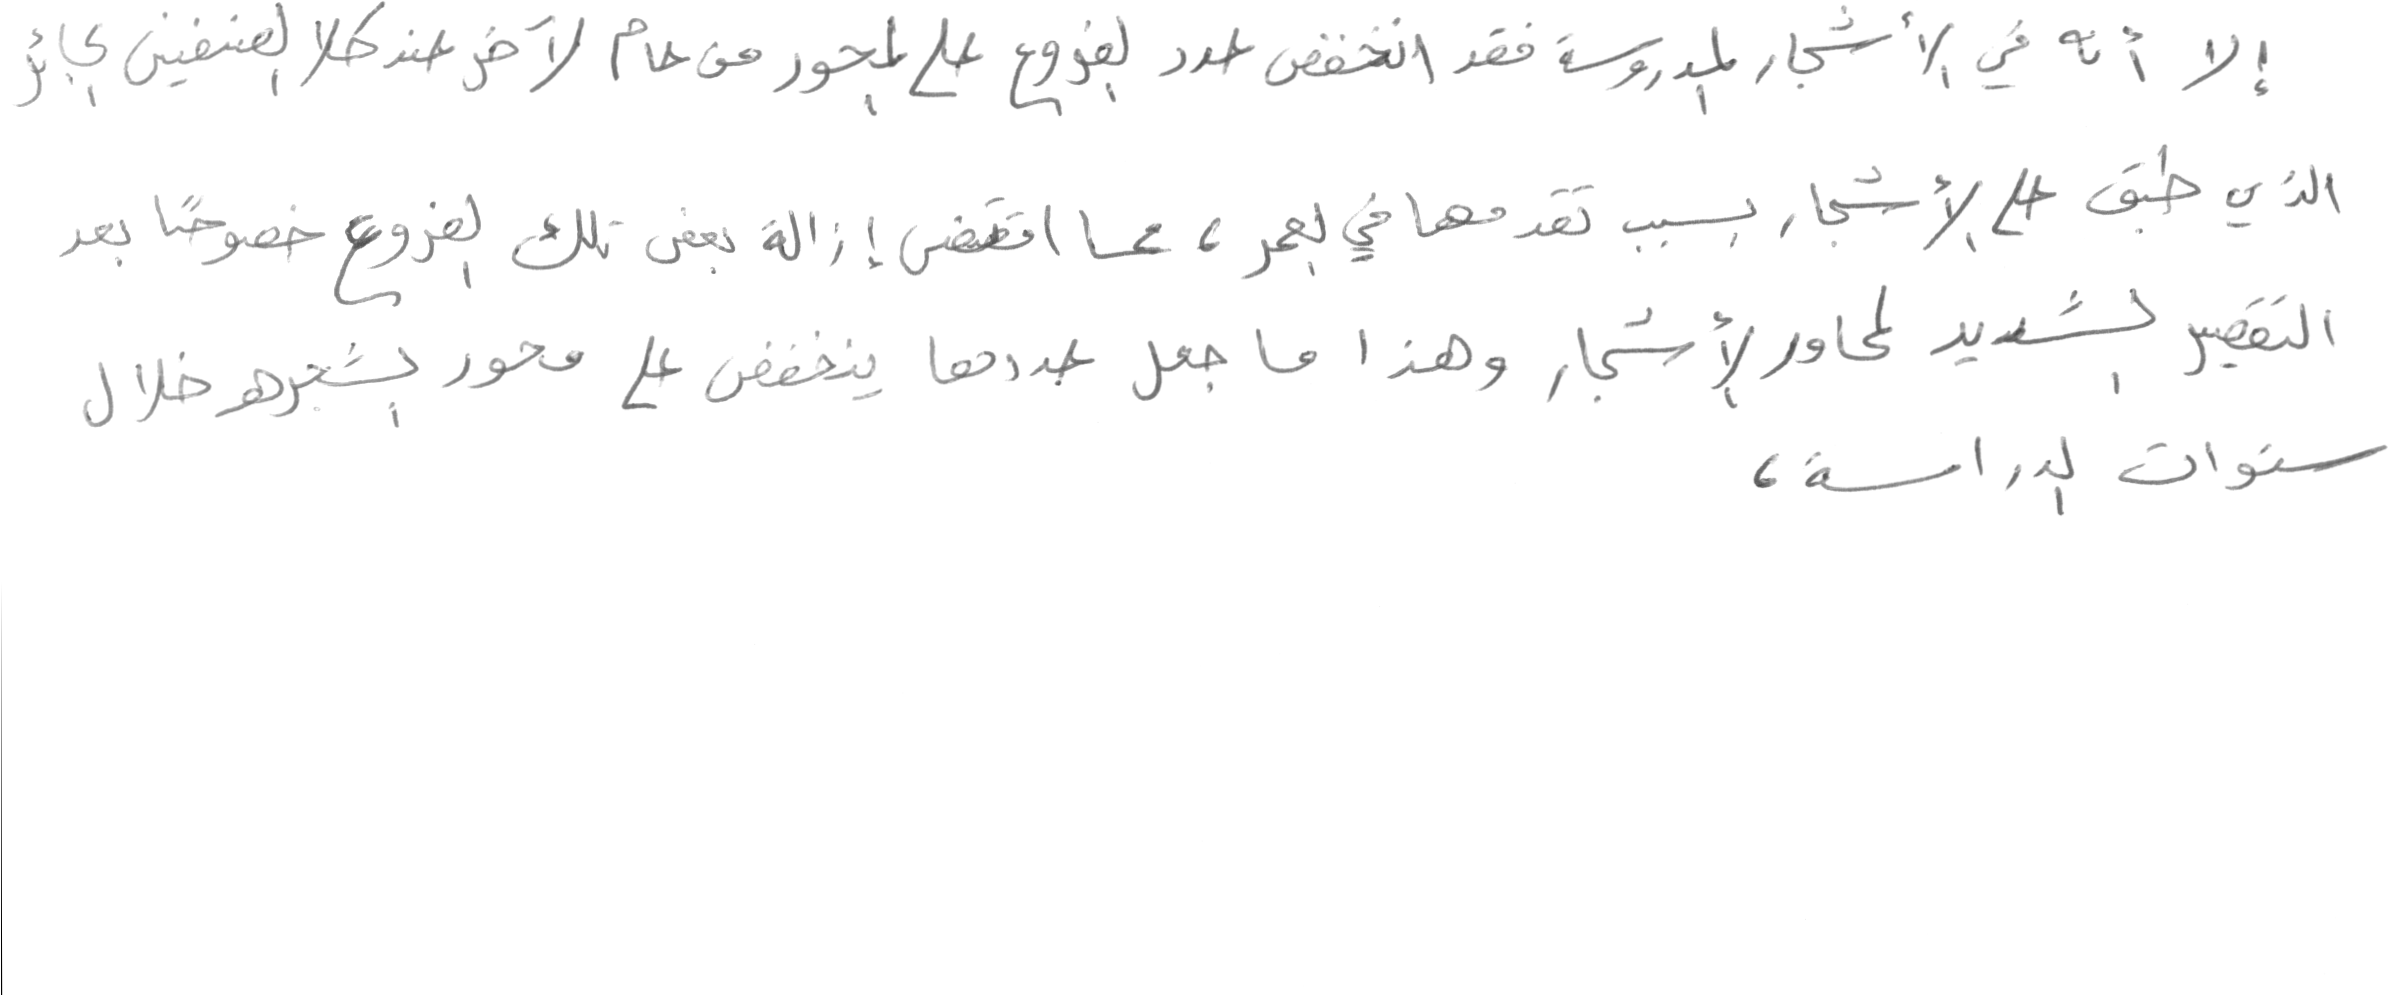 إلا أنه في الأشجار المدروسة فقد انخفض عدد الفروع على المحور من عام لآخر عند كلا الصنفين الجائر
الذي طبق على الأشجار بسبب تقدمها في العمر، مما اقتضى إزالة بعض تلك الفروع خصوصًا بعد
التقصير الشديد لمحاور الأشجار وهذا ما جعل عددها ينخفض على محور الشجره خلال
سنوات الدراسة،